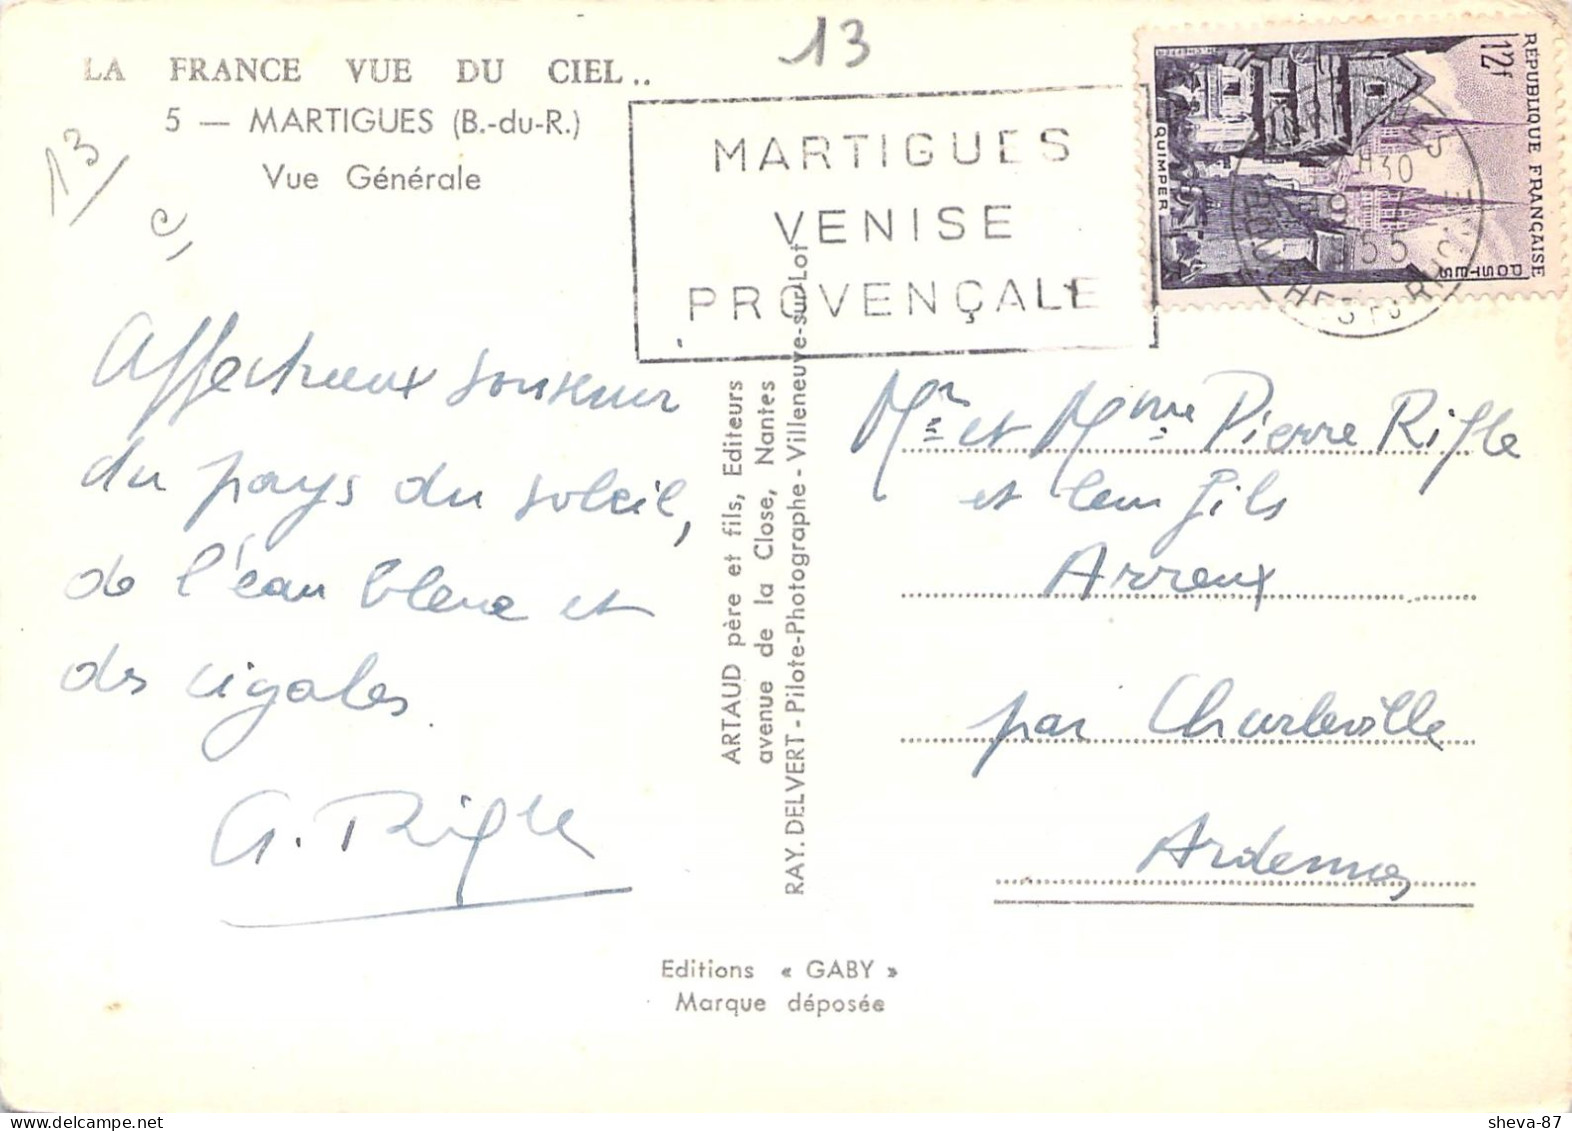 13
LA FRANCE VUE DU CIEL..
5 — MARTIGUES (B.-du-R.)
Vue Générale
13
MARTIGUES
VENISE
PROVENÇALE
RÉPUBLIQUE FRANÇAISE
12f
POSTES
QUIMPER
H30
1955
Affectueux souvenir
du pays du soleil,
de l'eau bleue et
des cigales.
G. Rifle
ARTAUD père et fils, Editeurs
avenue de la Close, Nantes
RAY. DELVERT - Pilote-Photographe - Villeneuve-sur-Lot
Mr et Mme Pierre Rifle
et leur fils
Arreux
par Charleville
Ardennes
Editions « GABY »
Marque déposée
sheva-87